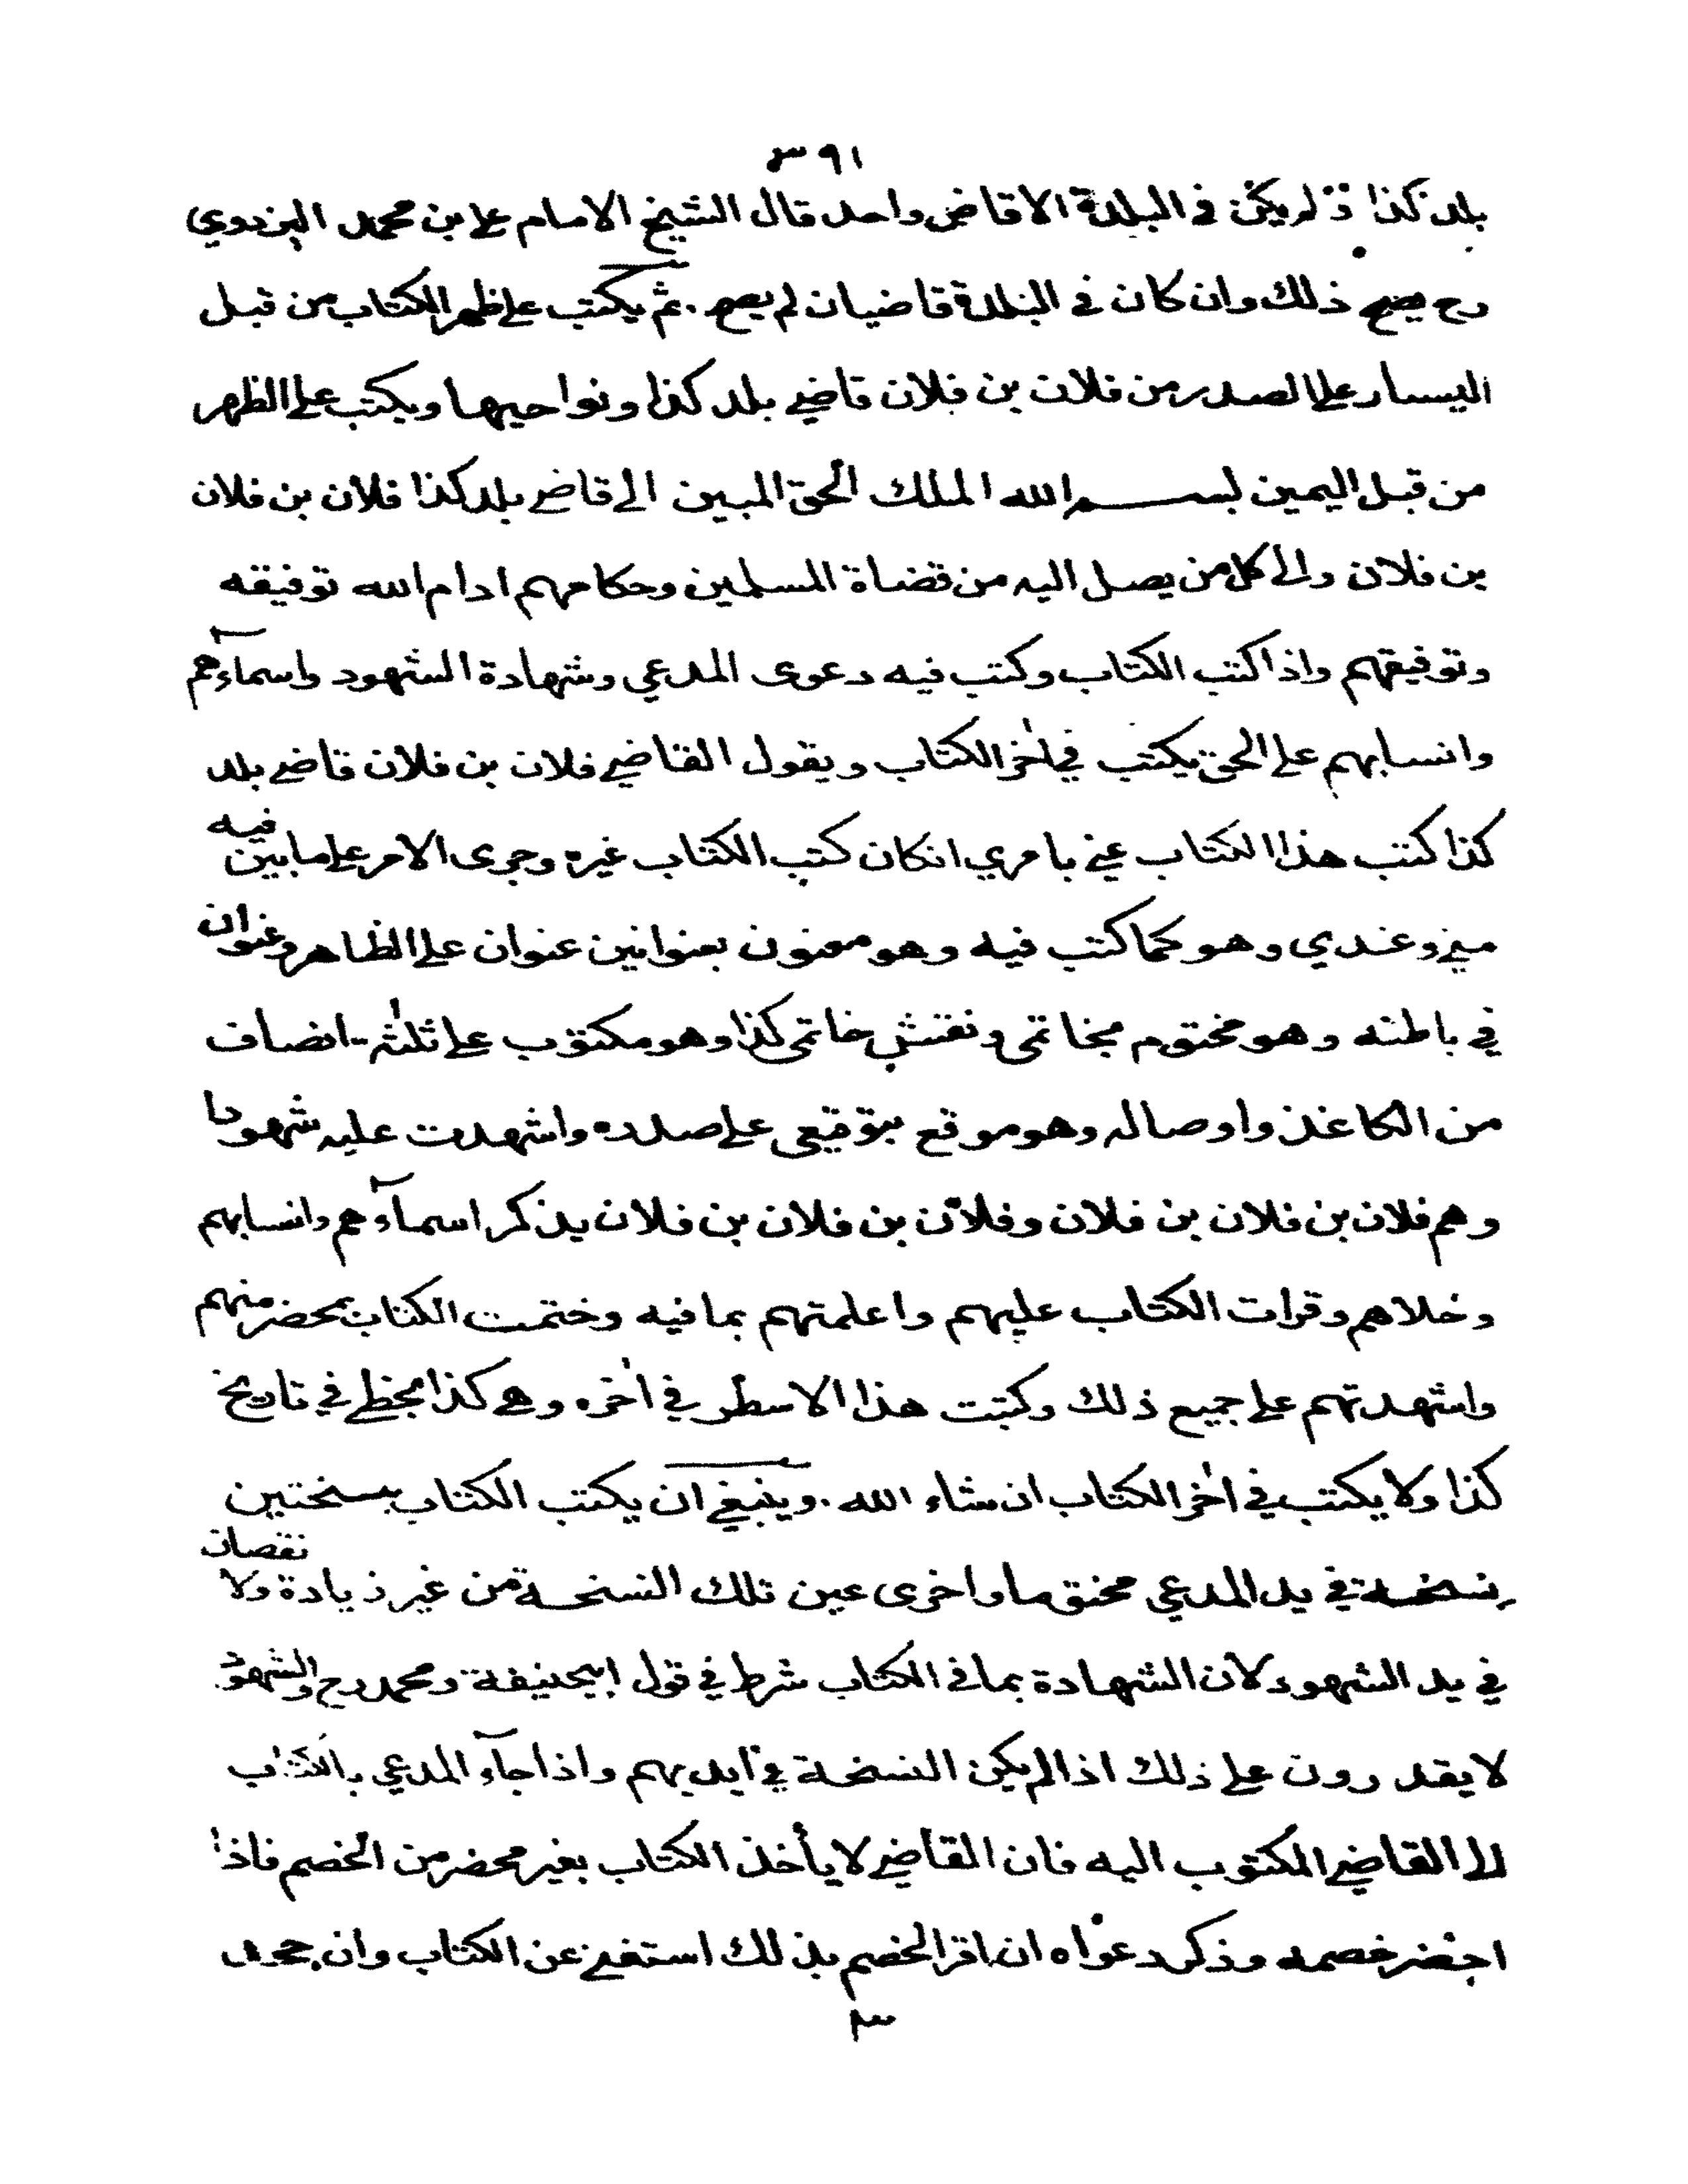 ٣٩١
بلد كذا و لم يكن في البلدة الا قاض واحد قال الشيخ الامام على بن محمد البزدوي
رح يصح ذلك وان كان في البلدة قاضيان لم يصح . ثم يكتب على ظهر الكتاب من قبل
اليسار على الصدر من فلان بن فلان قاضي بلد كذا ونواحيها ويكتب على الظهر
من قبل اليمين بسم الله الملك الحق المبين الى قاضي بلد كذا فلان بن فلان
بن فلان والى كل من يصل اليه من قضاة المسلمين وحكامهم ادام الله توفيقه
وتوفيقهم واذا كتب الكتاب وكتب فيه دعوى المدعي وشهادة الشهود واسمآءهم
وانسابهم على الحق يكتب في اخر الكتاب ويقول القاضي فلان بن فلان قاضي بلد
كذا كتب هذا الكتاب عني بامري انكان كتب الكتاب غيره وجرى الامر على ما بين فيه
مني وعندي وهو كما كتب فيه وهو معنون بعنوانين عنوان على الظاهر وعنوان
في باطنه وهو مختوم بخاتمى ونقش خاتمى كذا وهو مكتوب على ثلثة انصاف
من الكاغذ واوصاله وهو موقع بتوقيعى على صدره واشهدت عليه شهودا
وهم فلان بن فلان بن فلان وفلان بن فلان بن فلان يذكر اسمآءهم وانسابهم
وخلاهم وقرات الكتاب عليهم واعلمتهم بما فيه وختمت الكتاب بمحضر منهم
واشهدتهم على جميع ذلك وكتبت هذا الاسطر في اخره وهي كذا بخطي في تاريخ
كذا ولا يكتب في اخر الكتاب ان شاء الله . وينبغي ان يكتب الكتاب بنسختين
نسخة في يد المدعي مختوما واخرى عين تلك النسخة من غير زيادة ولا نقصان
في يد الشهود لان الشهادة بما في الكتاب شرط في قول ابيحنيفة ومحمد رح والشهود
لا يقدرون على ذلك اذا لم يكن النسخة في ايديهم واذا جآء المدعي بالكتاب
الى القاضي المكتوب اليه فان القاضي لا يأخذ الكتاب بغير محضر من الخصم فاذا
احضر خصمه وذكر دعواه ان اقر الخصم بذلك استغنى عن الكتاب وان جحد